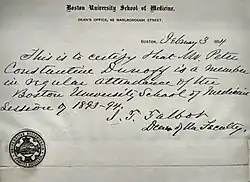 Boston University School of Medicine.
DEAN'S OFFICE, 66 MARLBOROUGH STREET,
Boston, February 3
This is to certify that Mr. Peter
Constantine Dunoff is a member
in regular attendance of the
Boston University School of Medicine
Session of 1893-94.
I. T. Talbot
Dean of the Faculty